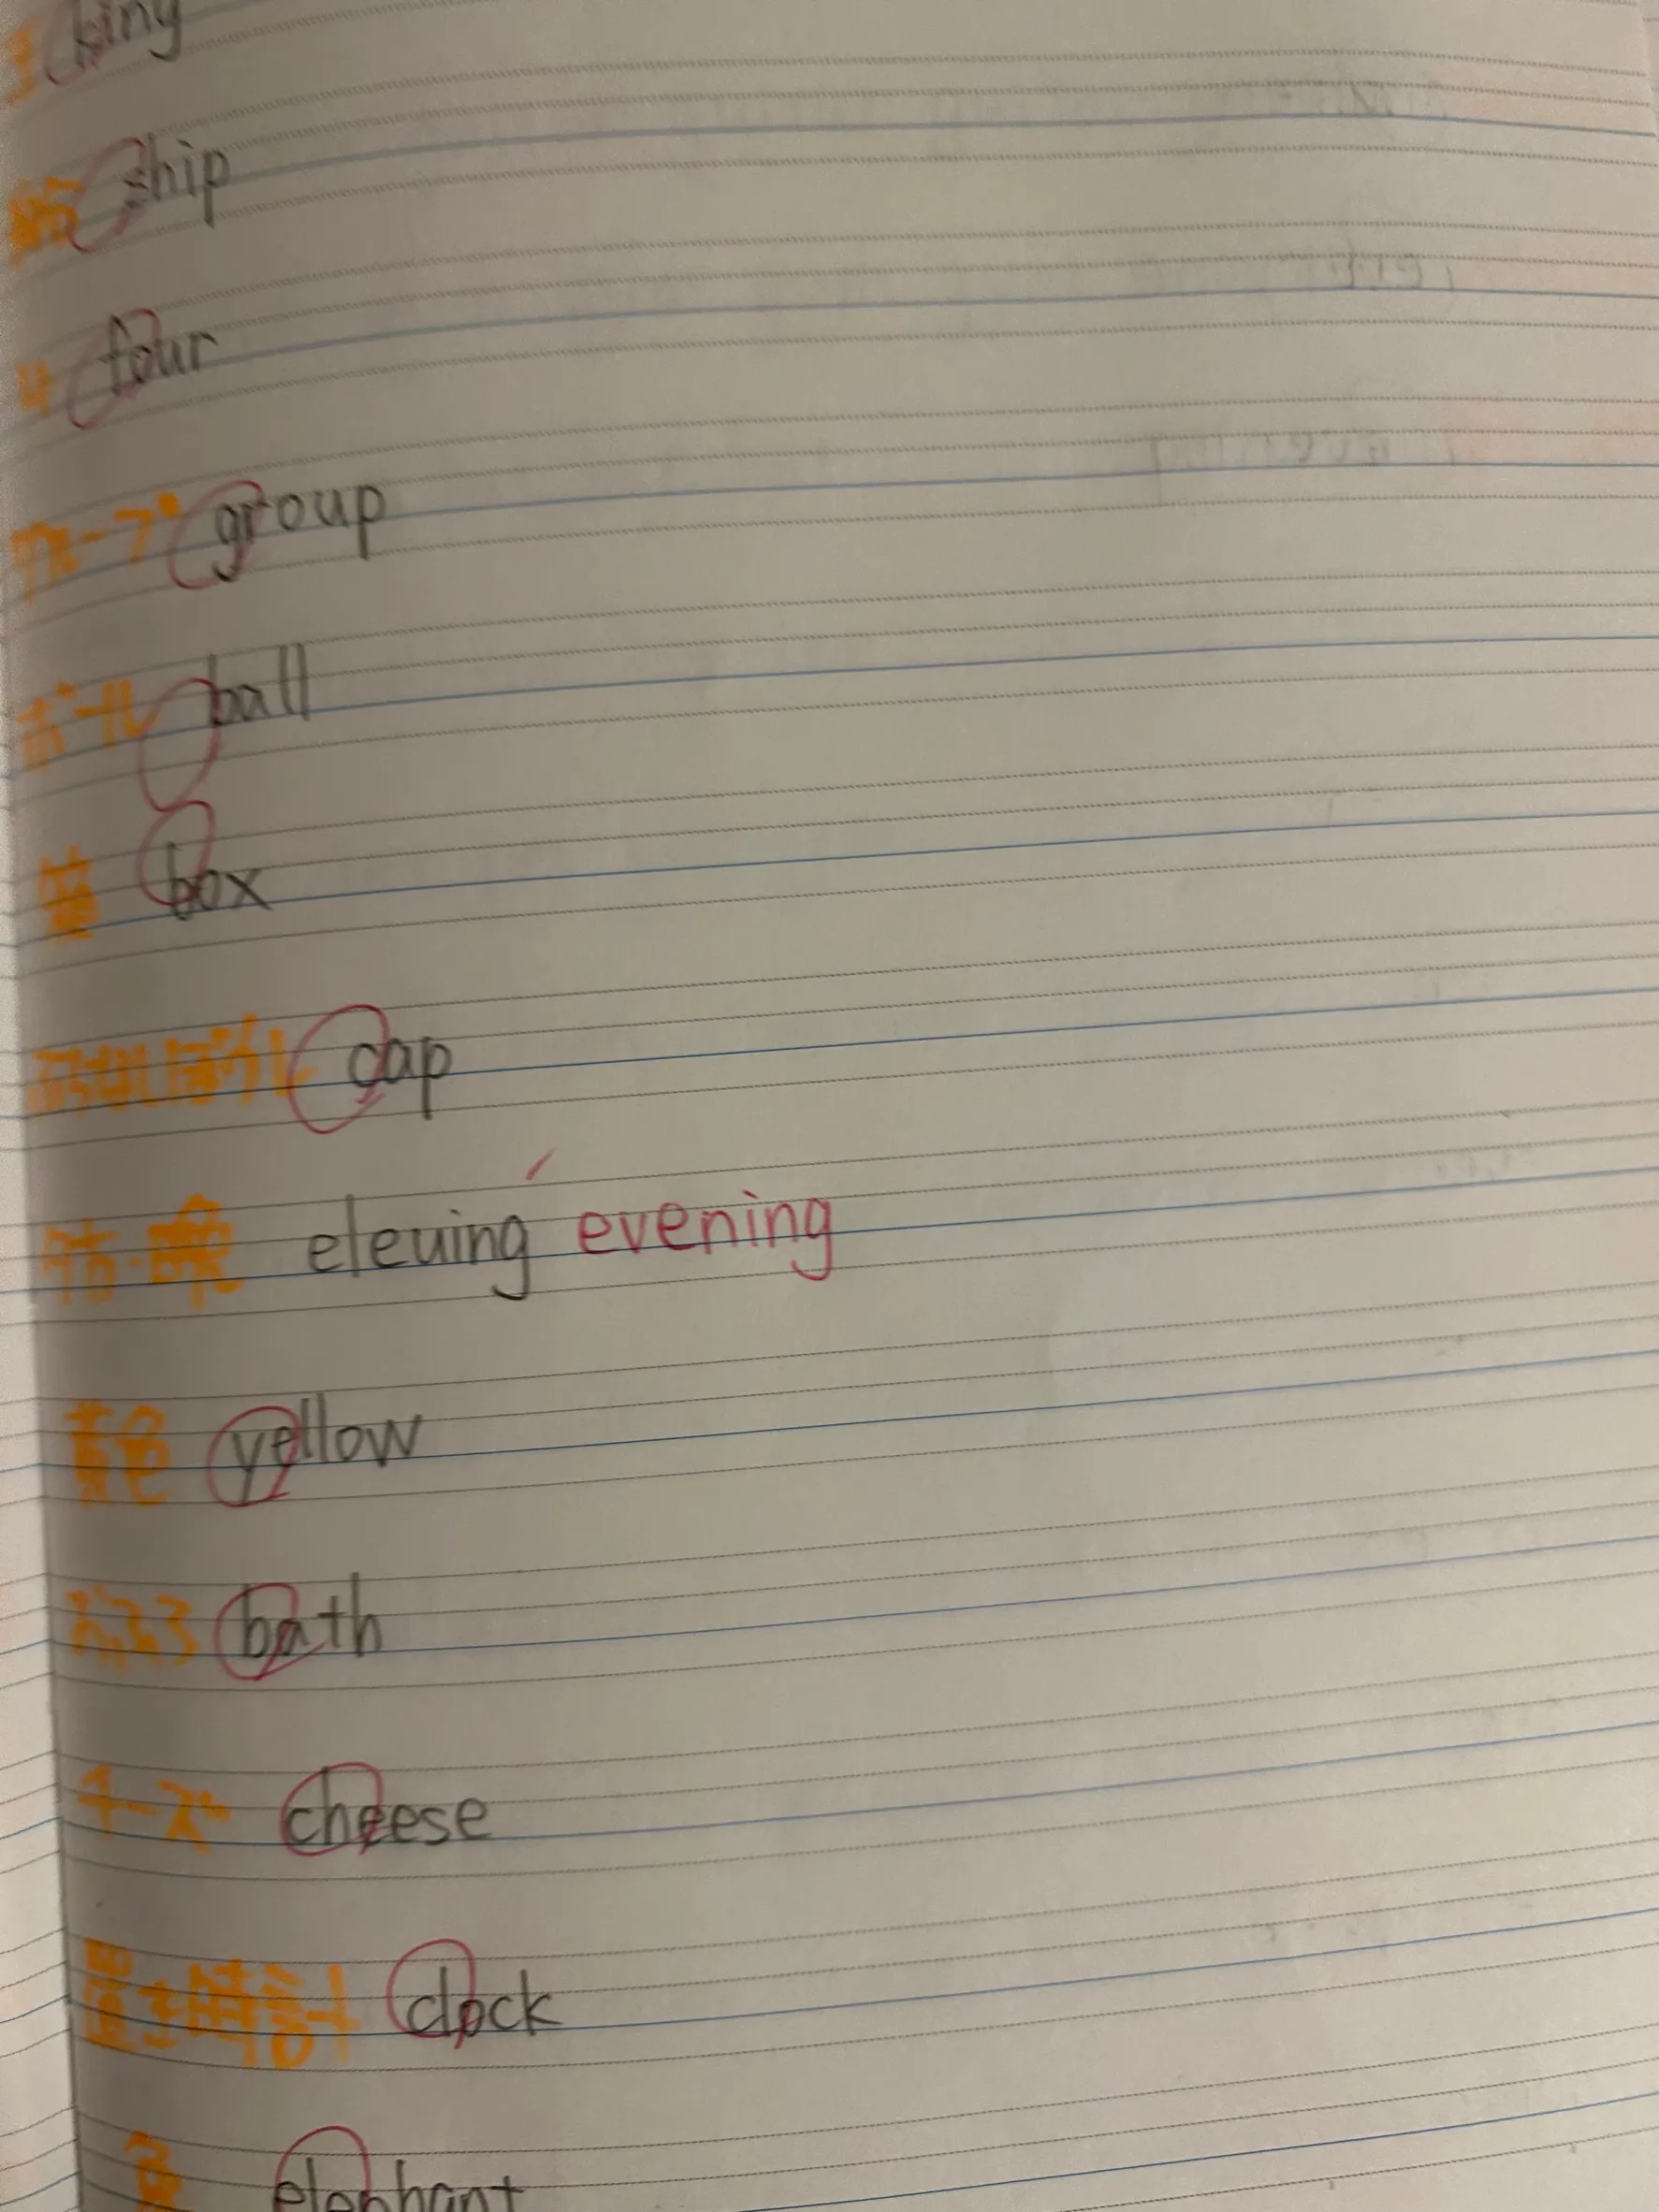 king
船 ship
4 four
グループ group
ボール ball
箱 box
ぼうし cap
晩 eleuing evening
黄色 yellow
ふろ bath
チーズ cheese
置き時計 clock
elephant